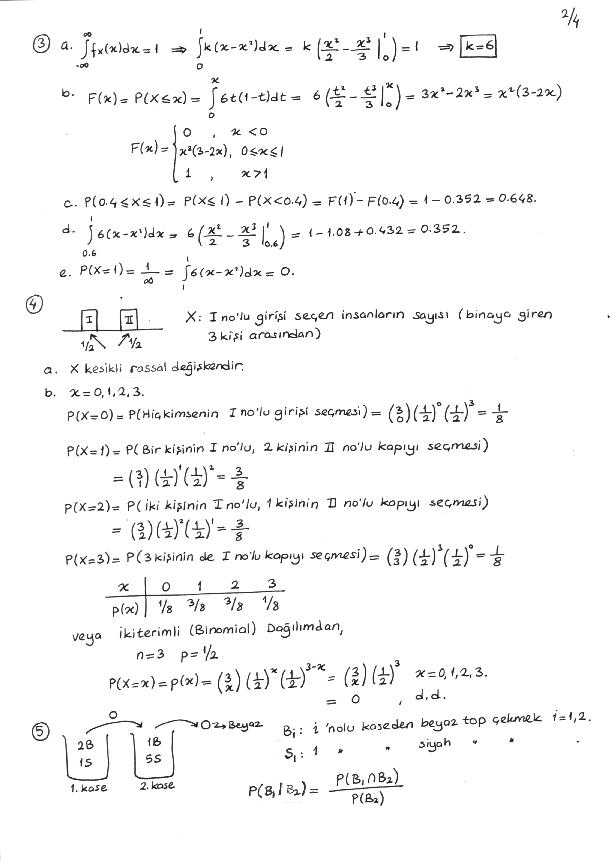 2/4
③ a. ∞∫-∞ fx(x)dx = 1 ⇒ 1∫0 k(x-x²)dx = k (x²/2 - x³/3 |¹₀) = 1 ⇒ k=6
b. F(x) = P(X≤x) = x∫0 6t(1-t)dt = 6 (t²/2 - t³/3 |ˣ₀) = 3x²-2x³ = x²(3-2x)
F(x) = { 0 , x<0
x²(3-2x), 0≤x≤1
1 , x>1
c. P(0.4≤X≤1) = P(X≤1) - P(X<0.4) = F(1) - F(0.4) = 1-0.352 = 0.648.
d. 1∫0.6 6(x-x²)dx = 6 (x²/2 - x³/3 |¹₀.₆) = 1-1.08+0.432 = 0.352.
e. P(X=1) = 1/∞ = 1∫1 6(x-x²)dx = 0.
④ I II X: I no'lu girişi seçen insanların sayısı (binaya giren
1/2 1/2 3 kişi arasından)
a. X kesikli rassal değişkendir.
b. x=0,1,2,3.
P(X=0) = P(Hiçkimsenin I no'lu girişi seçmesi) = (3 0)(1/2)⁰(1/2)³ = 1/8
P(X=1) = P(Bir kişinin I no'lu, 2 kişinin II no'lu kapıyı seçmesi)
= (3 1)(1/2)¹(1/2)² = 3/8
P(X=2) = P(iki kişinin I no'lu, 1 kişinin II no'lu kapıyı seçmesi)
= (3 2)(1/2)²(1/2)¹ = 3/8
P(X=3) = P(3 kişinin de I no'lu kapıyı seçmesi) = (3 3)(1/2)³(1/2)⁰ = 1/8
x | 0 1 2 3
p(x) | 1/8 3/8 3/8 1/8
veya ikiterimli (Binomial) Dağılımdan,
n=3 p=1/2
P(X=x) = p(x) = (3 x)(1/2)ˣ(1/2)³⁻ˣ = (3 x)(1/2)³ x=0,1,2,3.
= 0 , d.d.
⑤ O O→Beyaz Bi: i 'nolu kaseden beyaz top çekmek i=1,2.
2B 1B
1S 5S S1: 1 " " siyah " "
1. kase 2. kase P(B₁|B₂) = P(B₁∩B₂)/P(B₂)